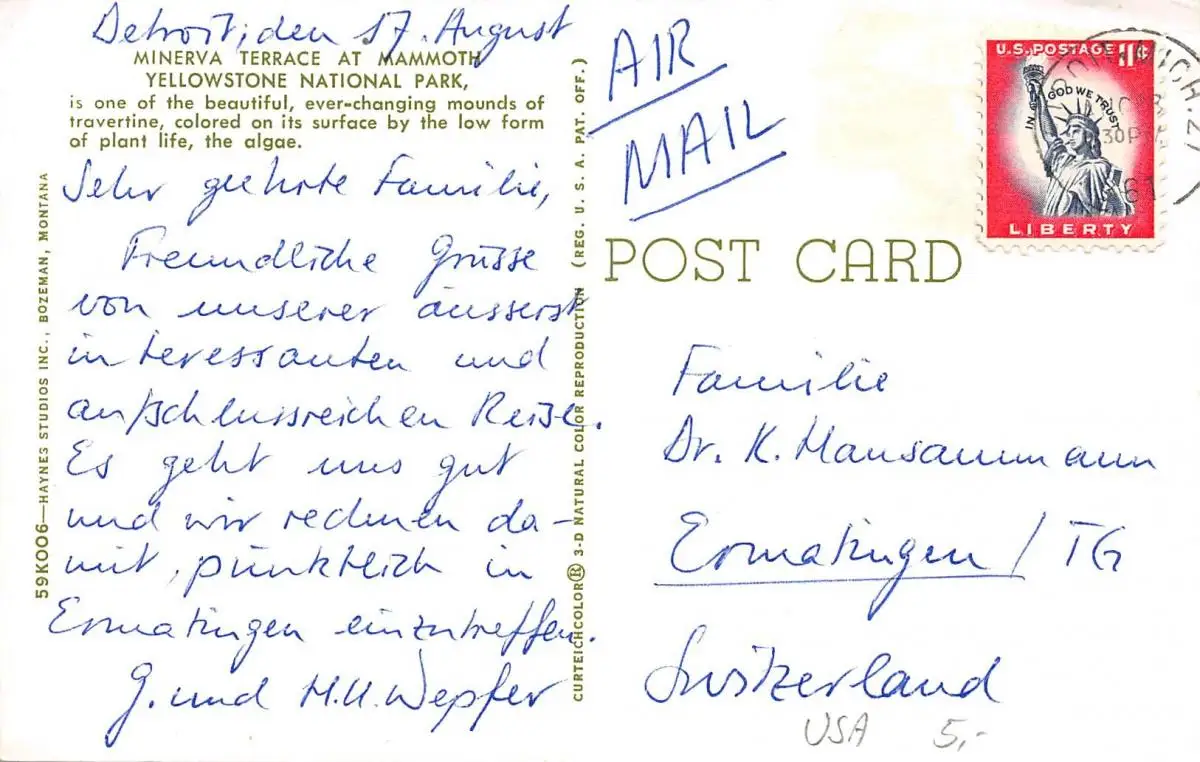 Detroit, den 17. August
MINERVA TERRACE AT MAMMOTH
YELLOWSTONE NATIONAL PARK,
is one of the beautiful, ever-changing mounds of
travertine, colored on its surface by the low form
of plant life, the algae.
Sehr geehrte Familie,
Freundliche Grüsse
von unserer äusserst
interessanten und
aufschlussreichen Reise.
Es geht uns gut
und wir rechnen da-
mit, pünktlich in
Ermatingen einzutreffen.
G. und H.U. Wepfer
59K006—HAYNES STUDIOS INC., BOZEMAN, MONTANA
CURTEICHCOLOR® 3-D NATURAL COLOR REPRODUCTION (REG. U. S. A. PAT. OFF.)
AIR
MAIL
POST CARD
U.S. POSTAGE 11¢
IN GOD WE TRUST
LIBERTY
MICH. 21
30PM
Familie
Dr. K. Mansammann
Ermatingen / TG
Switzerland
USA 5,-